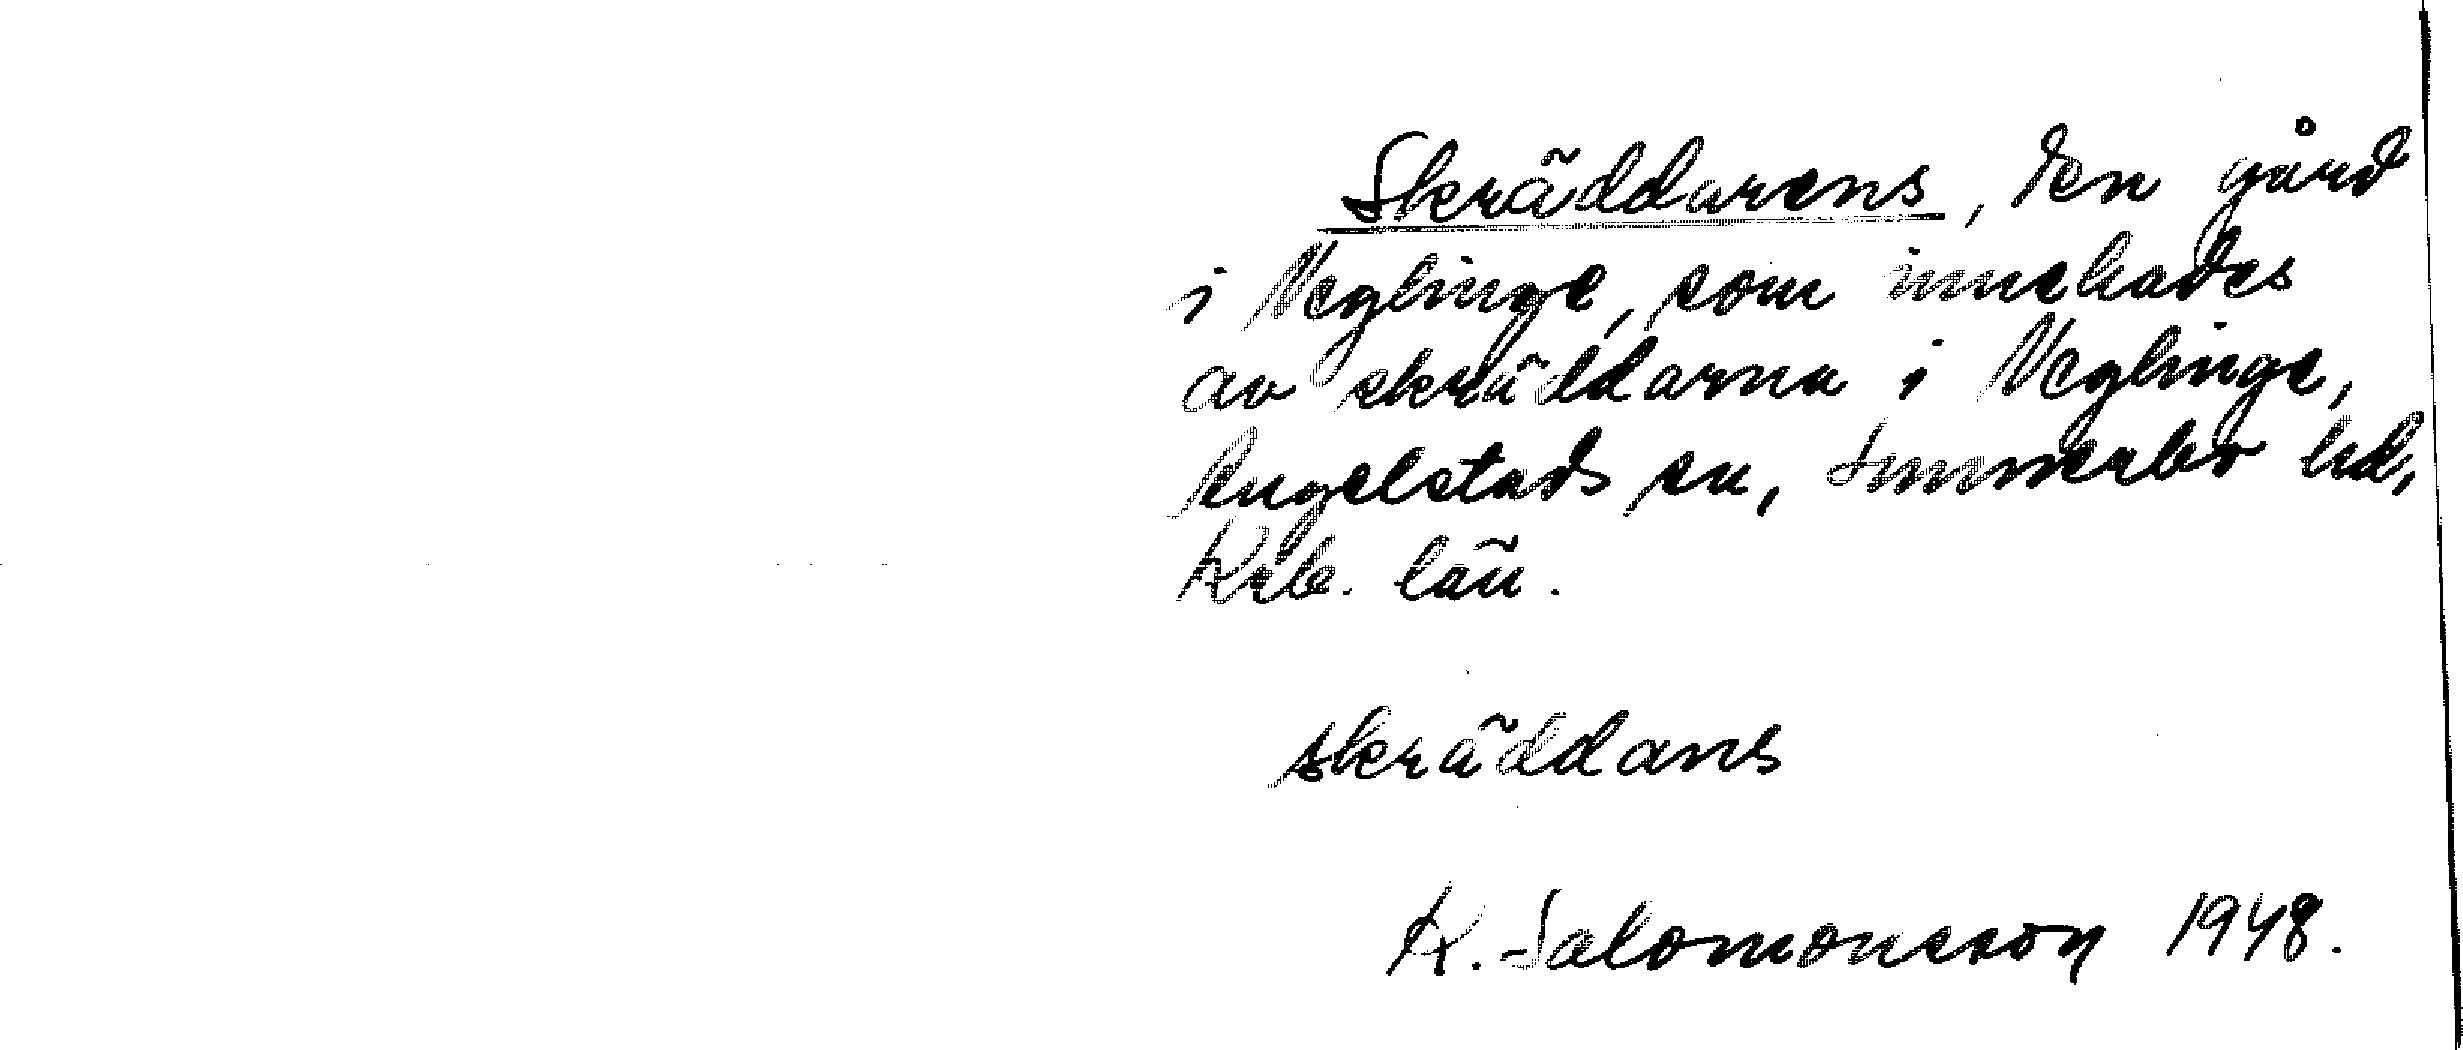 Skräddarens, den gård
i Veglinge, som innehades
av skräddarna i Veglinge,
Ängelstads sn, Sunnerbo hd,
Krb. län.
skräddans
K. Salomonsson 1948.